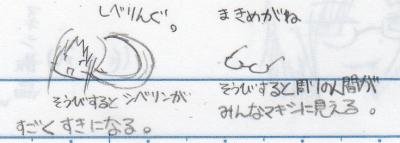 しべりんぐ。
そうびするとシベリンが
すごくすきになる。
まきめがね
そうびすると周りの人間が
みんなマキシに見える。